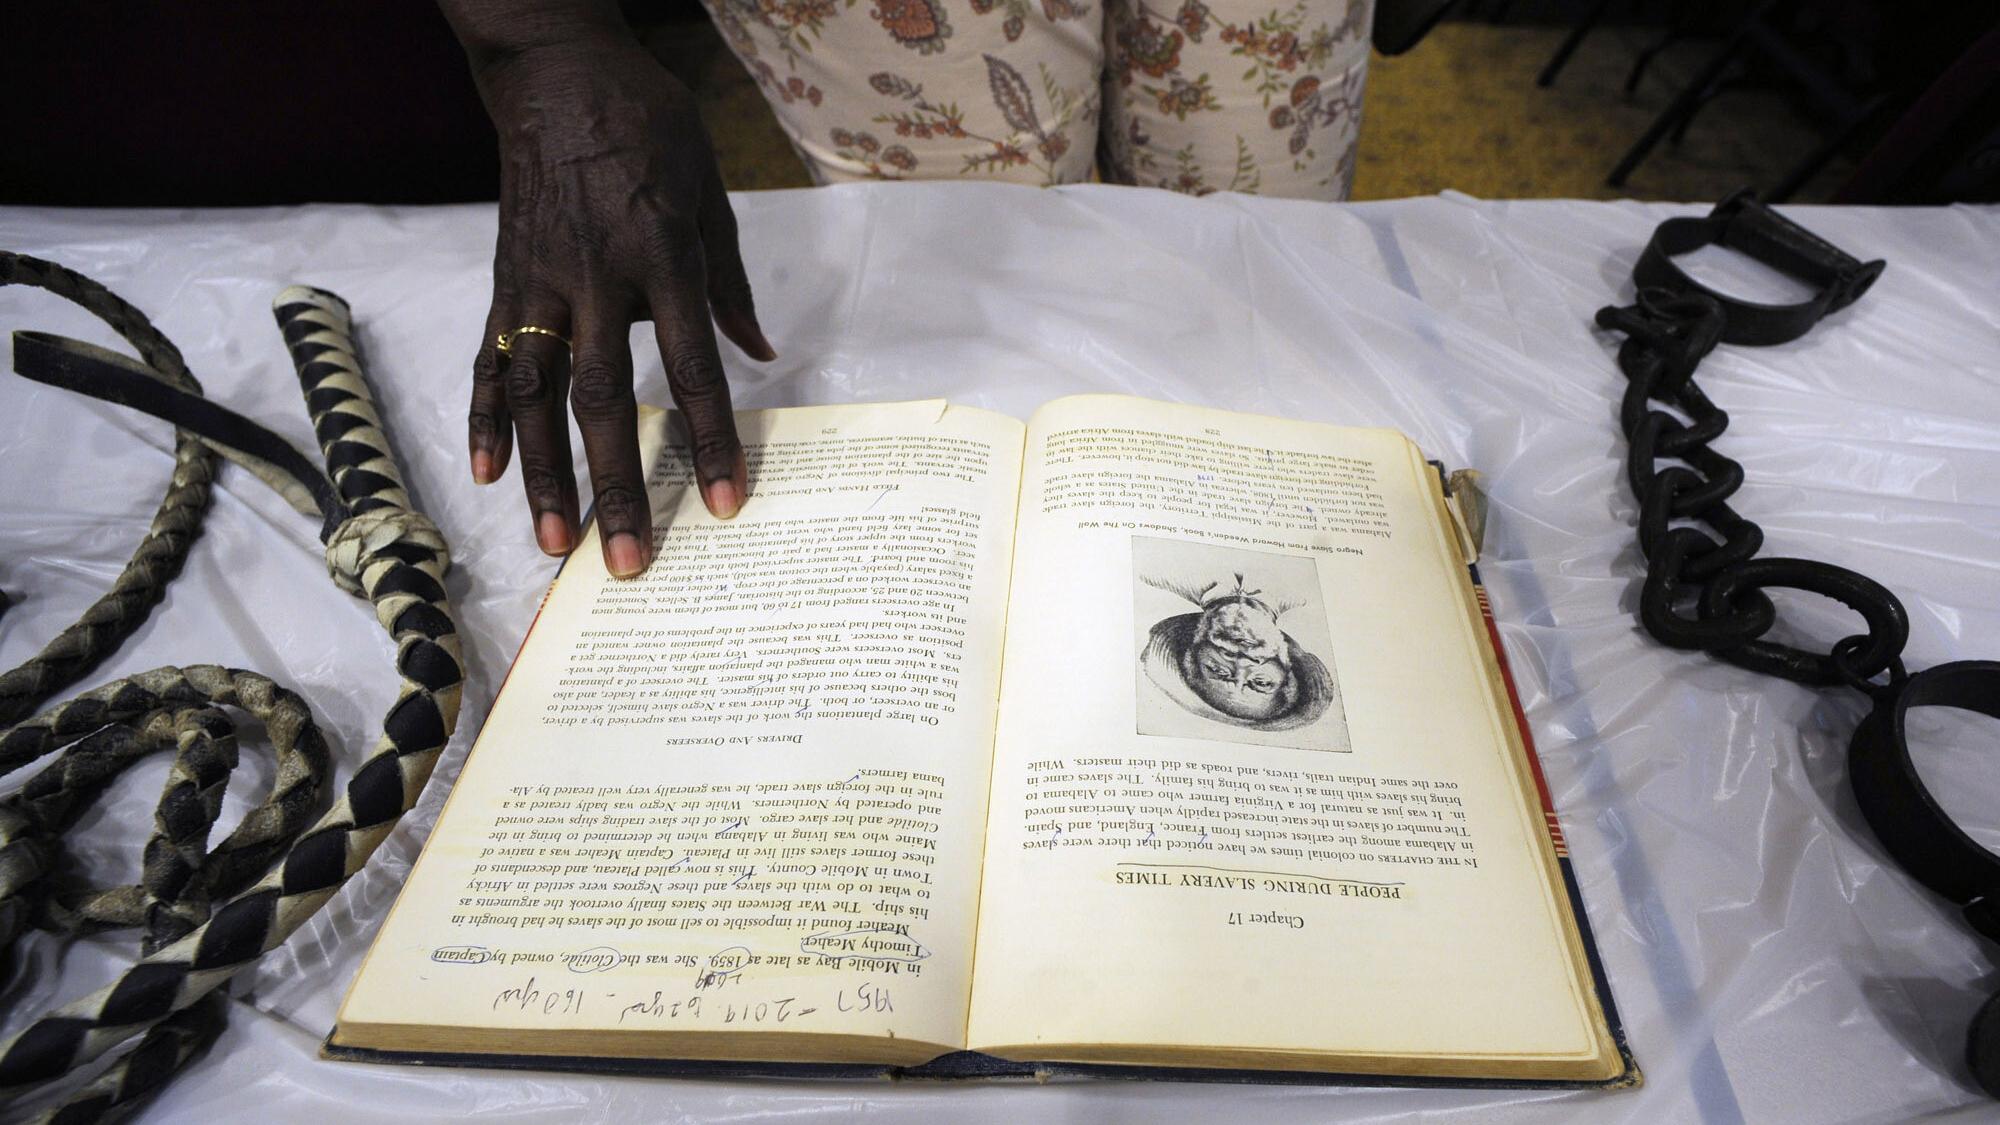 Chapter 17
PEOPLE DURING SLAVERY TIMES
IN THE CHAPTERS ON colonial times we have noticed that there were slaves
in Alabama among the earliest settlers from France, England, and Spain.
The number of slaves in the state increased rapidly when Americans moved
in. It was just as natural for a Virginia farmer who came to Alabama to
bring his slaves with him as it was to bring his family. The slaves came in
over the same Indian trails, rivers, and roads as did their masters. While
Negro Slave From Howard Weeden's Book, Shadows On The Wall
Alabama was part of the Mississippi Territory, the foreign slave trade
was outlawed. However, it was legal for people to keep the slaves they
already owned. The foreign slave trade in the United States as a whole
was not forbidden until 1808, whereas in Alabama the foreign slave trade
had been outlawed ten years before. 1798
Forbidding the foreign slave trade by law did not stop it, however. There
were slave traders who were willing to take their chances with the law in
order to make large profits. So slaves were smuggled in from Africa long
after the law forbade it. ship loaded with slaves from Africa arrived
228
1957 = 2019 62 yrs - 160 yrs
2019
in Mobile Bay as late as 1859. She was the Clotilde, owned by Captain
Timothy Meaher.
Meaher found it impossible to sell most of the slaves he had brought in
his ship. The War Between the States finally overtook the arguments as
to what to do with the slaves and these Negroes were settled in Africky
Town in Mobile County. This is now called Plateau, and descendants of
these former slaves still live in Plateau. Captain Meaher was a native of
Maine who was living in Alabama when he determined to bring in the
Clotilde and her slave cargo. Most of the slave trading ships were owned
and operated by Northerners. While the Negro was badly treated as a
rule in the foreign slave trade, he was generally very well treated by Ala-
bama farmers.
DRIVERS AND OVERSEERS
On large plantations the work of the slaves was supervised by a driver,
or an overseer, or both. The driver was a Negro slave himself, selected to
boss the others because of his intelligence, his ability as a leader, and also
his ability to carry out orders of his master. The overseer of a plantation
was a white man who managed the plantation affairs, including the work-
ers. Most overseers were Southerners. Very rarely did a Northerner get a
position as overseer. This was because the plantation owner wanted an
overseer who had had years of experience in the problems of the plantation
and its workers.
In age overseers ranged from 17 to 60, but most of them were young men
between 20 and 25, according to the historian, James B. Sellers. Sometimes
an overseer worked on a percentage of the crop. At other times he received
a fixed salary (payable when the cotton was sold), such as $400 per year plus
his room and board. The master supervised both the driver and the
seer. Occasionally a master had a pair of binoculars and watched
workers from the upper story of his plantation house. This
for some lazy field hand who went to sleep beside his job to
surprise of his life from the master who had been watching him
field glasses!
FIELD HANDS AND DOMESTIC
The two principal divisions of Negro slaves were
mestic servants. The work of the domestic servants
upon the size of the plantation house and the wealth
servants recognized some of the jobs as carrying more
such as that of butler, seamstress, nurse, coachman, or
229